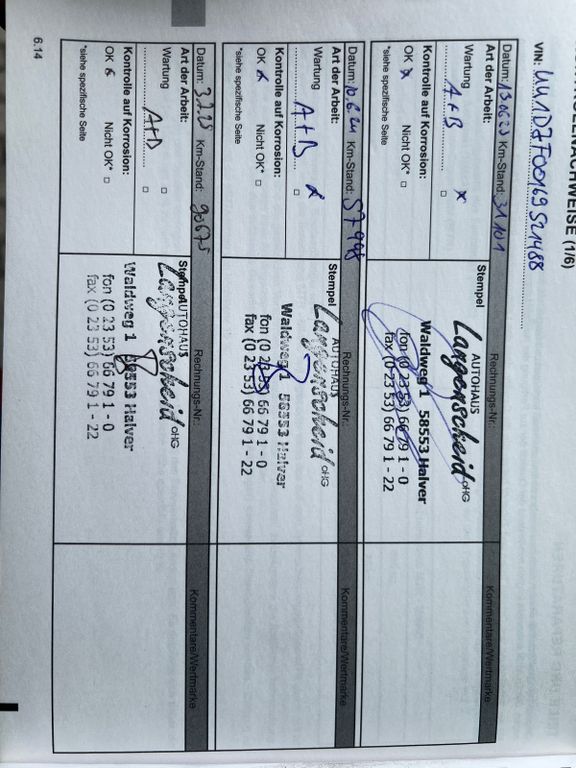 NACHWEISE (1/6)
VIN: UU1DJF00169521488
Datum: 13.06.23 Km-Stand: 31101
Rechnungs-Nr.:
Kommentare/Wertmarke
Art der Arbeit:
Wartung
A+B
Kontrolle auf Korrosion:
OK Nicht OK*
*siehe spezifische Seite
Stempel
AUTOHAUS
Langenscheid oHG
Waldweg 1 58553 Halver
fon (0 23 53) 66 79 1 - 0
fax (0 23 53) 66 79 1 - 22
Datum: 10.6.24 Km-Stand: 57998
Rechnungs-Nr.:
Kommentare/Wertmarke
Art der Arbeit:
Wartung
A+B
Kontrolle auf Korrosion:
OK Nicht OK*
*siehe spezifische Seite
Stempel
AUTOHAUS
Langenscheid oHG
Waldweg 1 58553 Halver
fon (0 23 53) 66 79 1 - 0
fax (0 23 53) 66 79 1 - 22
Datum: 3.7.25 Km-Stand: 90675
Rechnungs-Nr.:
Kommentare/Wertmarke
Art der Arbeit:
Wartung
A+B
Kontrolle auf Korrosion:
OK Nicht OK*
*siehe spezifische Seite
Stempel
AUTOHAUS
Langenscheid oHG
Waldweg 1 58553 Halver
fon (0 23 53) 66 79 1 - 0
fax (0 23 53) 66 79 1 - 22
6.14